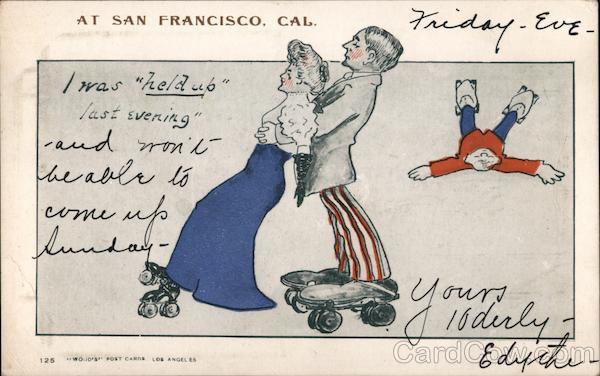 AT SAN FRANCISCO, CAL.
Friday - Eve -
I was "held up"
last evening"
- and won't
be able to
come up
Sunday -
Yours
10derly -
Edythe -
125 "WOOD'S" POST CARDS. LOS ANGELES
CardCow.com